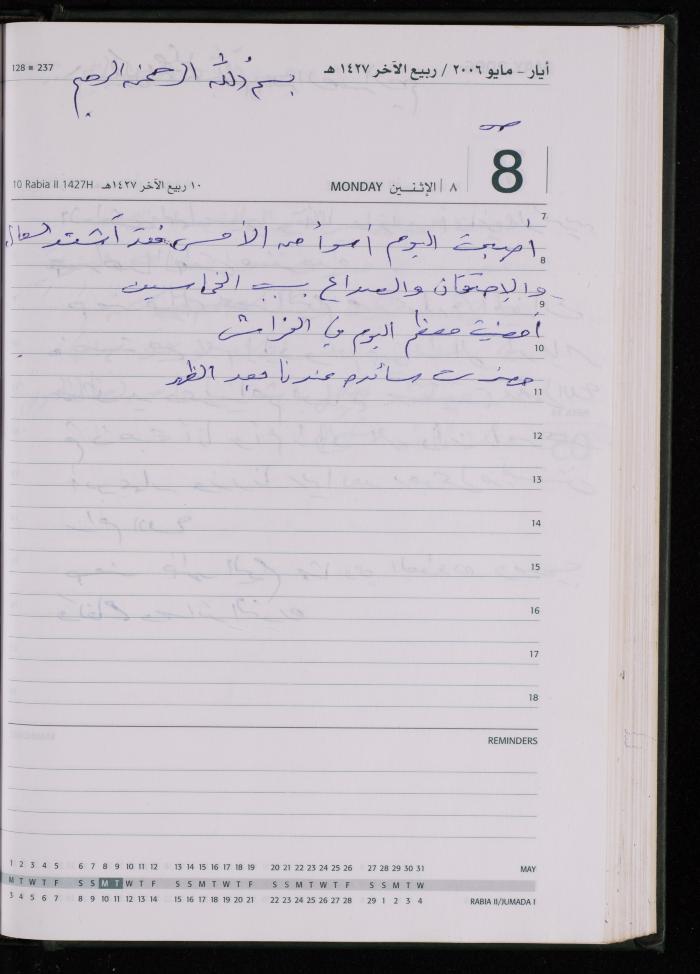 أيار - مايو ٢٠٠٦ / ربيع الآخر ١٤٢٧ هـ
128 ■ 237
بسم الله الرحمن الرحيم
8
٨ الإثنـــين MONDAY
١٠ ربيع الآخر ١٤٢٧هـ 10 Rabia II 1427H
7
أصبحت اليوم أسوأ من الأمس فقد أشتد السعال
8
والإحتقان والصداع بسبب الخماسين
9
أمضيت معظم اليوم في الفراش
10
حضرت سائده عندنا بعد الظهر
11
12
13
14
15
16
17
18
REMINDERS
1 2 3 4 5 6 7 8 9 10 11 12 13 14 15 16 17 18 19 20 21 22 23 24 25 26 27 28 29 30 31 MAY
M T W T F S S M T W T F S S M T W T F S S M T W T F S S M T W
3 4 5 6 7 8 9 10 11 12 13 14 15 16 17 18 19 20 21 22 23 24 25 26 27 28 29 1 2 3 4 RABIA II/JUMADA I